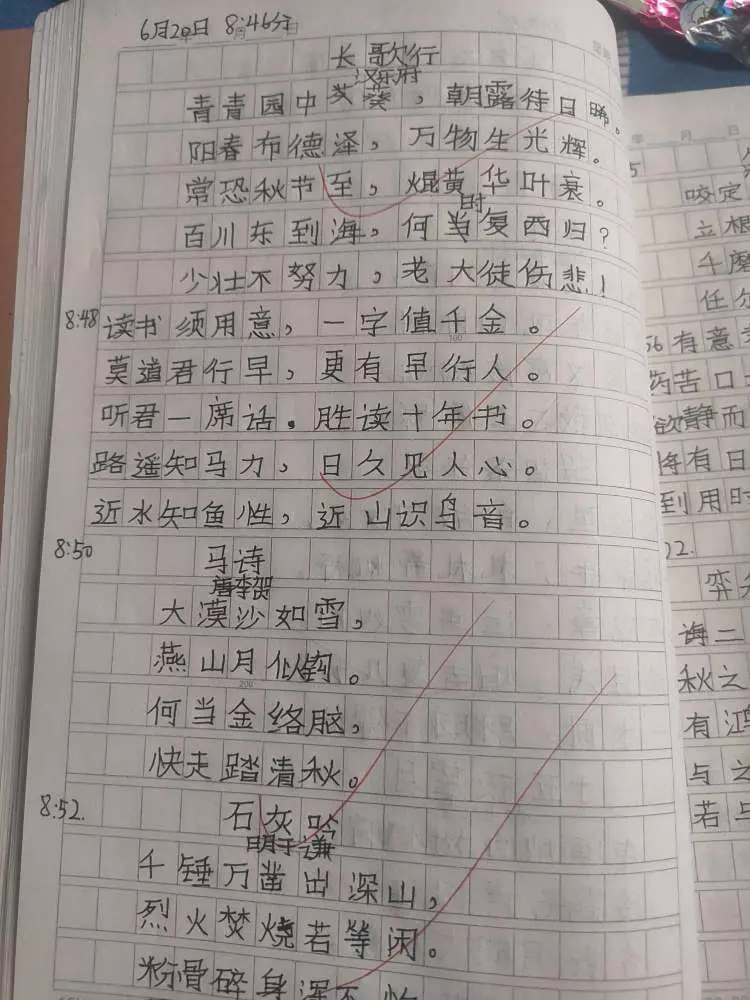 6月20日 8:46分
长歌行
汉乐府
青青园中葵，朝露待日晞。
阳春布德泽，万物生光辉。
常恐秋节至，焜黄华叶衰。
百川东到海，何时复西归？
少壮不努力，老大徒伤悲！
8:48 读书须用意，一字值千金。
莫道君行早，更有早行人。
听君一席话．胜读十年书。
路遥知马力，日久见人心。
近水知鱼性，近山识鸟音。
8:50 马诗
唐李贺
大漠沙如雪，
燕山月似钩。
何当金络脑，
快走踏清秋。
8:52. 石灰吟
明于谦
千锤万凿出深山，
烈火焚烧若等闲。
粉骨碎身浑不怕
年 月 日
咬定
立根
千磨
任尔
56 有意
药苦口
欲静而
将有日
到用时
22.
弈
诲二
秋之
有鸿
与之
若与